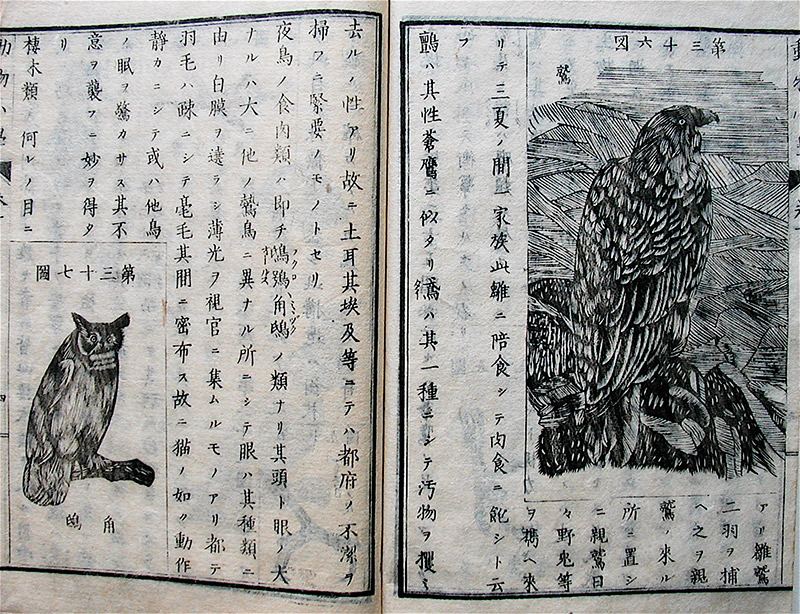 第三十六図
鷲
アリ雛鷲
二羽ヲ捕
ヘ之ヲ親
鷲ノ來ル
所ニ置シ
ニ親鷲日
々野兎等
ヲ携ヘ來
リテ三夏ノ間一家族此雛ニ陪食シテ肉食ニ飽シト云
フ
鸇ハ其性蒼鷹ニ似タリ鳶ハ其一種ニシテ汚物ヲ攫ミ
去ルノ性アリ故ニ土耳其埃及等ニテハ都府ノ不潔ヲ
掃フニ緊要ノモノトセリ
夜鳥ノ食肉類ハ即チ鴟鵂角鴟ノ類ナリ其頭ト眼ノ大
ナルハ大ニ他ノ鷙鳥ニ異ナル所ニシテ眼ハ其種類ニ
由リ白膜ヲ遶ラシ薄光ヲ視官ニ集ムルモノアリ都テ
羽毛ハ疎ニシテ毫毛其間ニ密布ス故ニ猫ノ如ク動作
静カニシテ或ハ他鳥
ノ眠ヲ驚カサス其不
意ヲ襲フニ妙ヲ得タ
リ
棲木類ハ何レノ日ニ
第三十七圖
角鴟